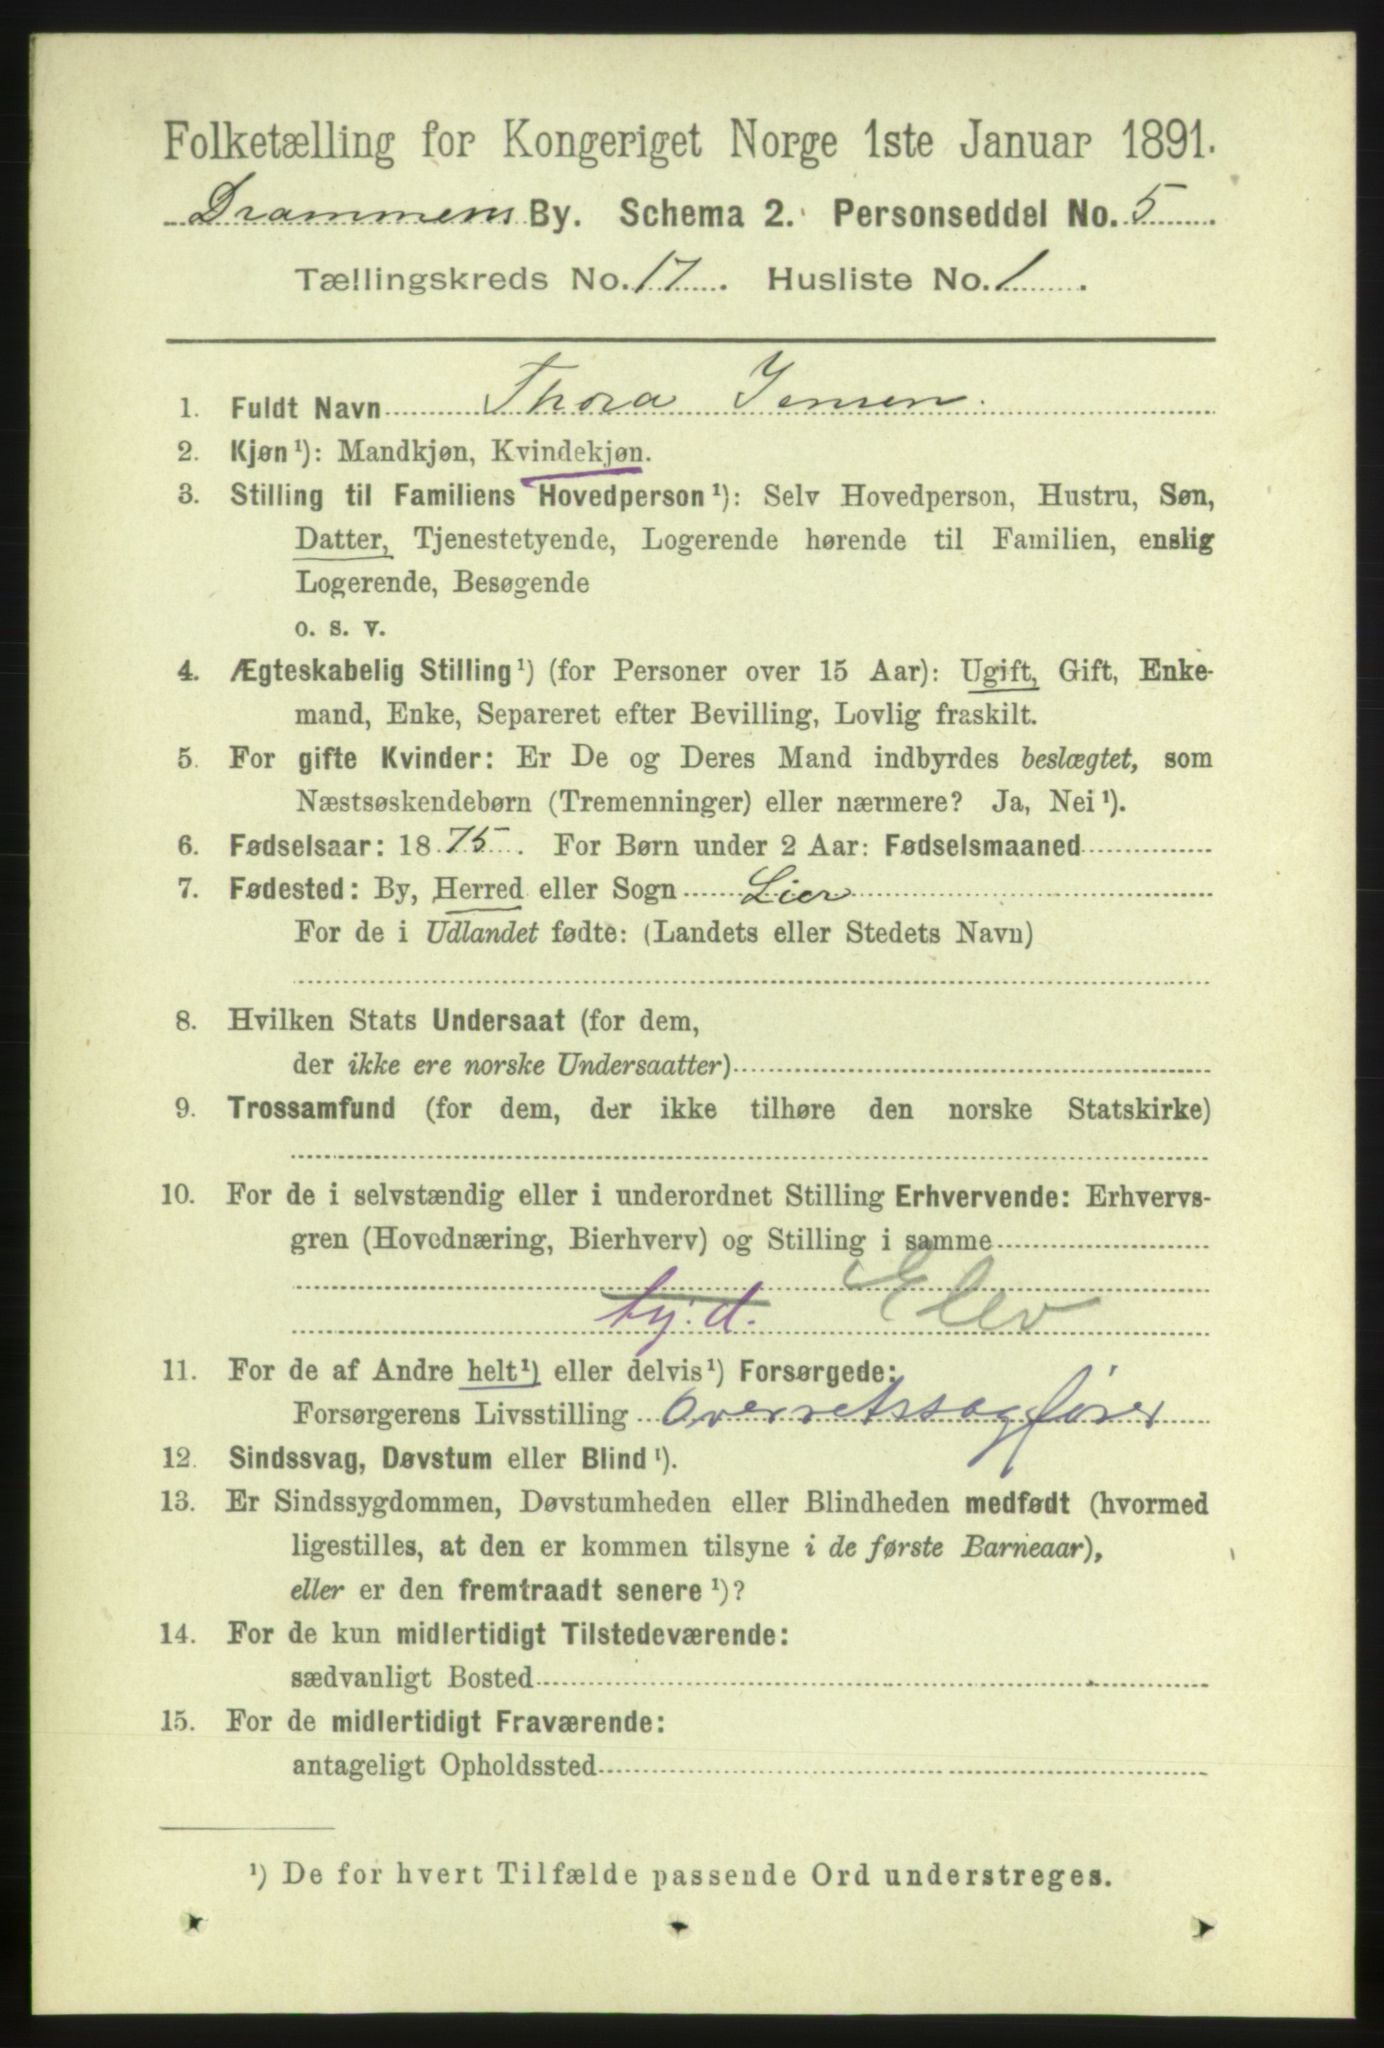 Folketælling for Kongeriget Norge 1ste Januar 1891.
Drammens By. Schema 2. Personseddel No. 5
Tællingskreds No. 17. Husliste No. 1.
1. Fuldt Navn Thora Jensen.
2. Kjøn¹): Mandkjøn, Kvindekjøn.
3. Stilling til Familiens Hovedperson¹): Selv Hovedperson, Hustru, Søn,
Datter, Tjenestetyende, Logerende hørende til Familien, enslig
Logerende, Besøgende
o. s. v.
4. Ægteskabelig Stilling¹) (for Personer over 15 Aar): Ugift, Gift, Enke-
mand, Enke, Separeret efter Bevilling, Lovlig fraskilt.
5. For gifte Kvinder: Er De og Deres Mand indbyrdes beslægtet, som
Næstsøskendebørn (Tremenninger) eller nærmere? Ja, Nei¹).
6. Fødselsaar: 1875. For Børn under 2 Aar: Fødselsmaaned
7. Fødested: By, Herred eller Sogn Lier
For de i Udlandet fødte: (Landets eller Stedets Navn)
8. Hvilken Stats Undersaat (for dem,
der ikke ere norske Undersaatter)
9. Trossamfund (for dem, der ikke tilhøre den norske Statskirke)
10. For de i selvstændig eller i underordnet Stilling Erhvervende: Erhvervs-
gren (Hovednæring, Bierhverv) og Stilling i samme
tj. d. Elev
11. For de af Andre helt¹) eller delvis¹) Forsørgede:
Forsørgerens Livsstilling Overretssagfører
12. Sindssvag, Døvstum eller Blind¹).
13. Er Sindssygdommen, Døvstumheden eller Blindheden medfødt (hvormed
ligestilles, at den er kommen tilsyne i de første Barneaar),
eller er den fremtraadt senere¹)?
14. For de kun midlertidigt Tilstedeværende:
sædvanligt Bosted
15. For de midlertidigt Fraværende:
antageligt Opholdssted
¹) De for hvert Tilfælde passende Ord understreges.